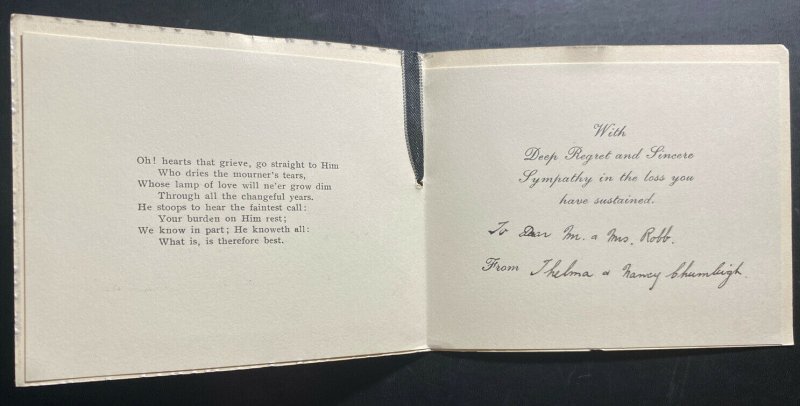 Oh! hearts that grieve, go straight to Him
Who dries the mourner's tears,
Whose lamp of love will ne'er grow dim
Through all the changeful years.
He stoops to hear the faintest call:
Your burden on Him rest;
We know in part; He knoweth all:
What is, is therefore best.
With
Deep Regret and Sincere
Sympathy in the loss you
have sustained.
To Dear Mr. & Mrs. Robb.
From Thelma & Nancy Chumleigh.